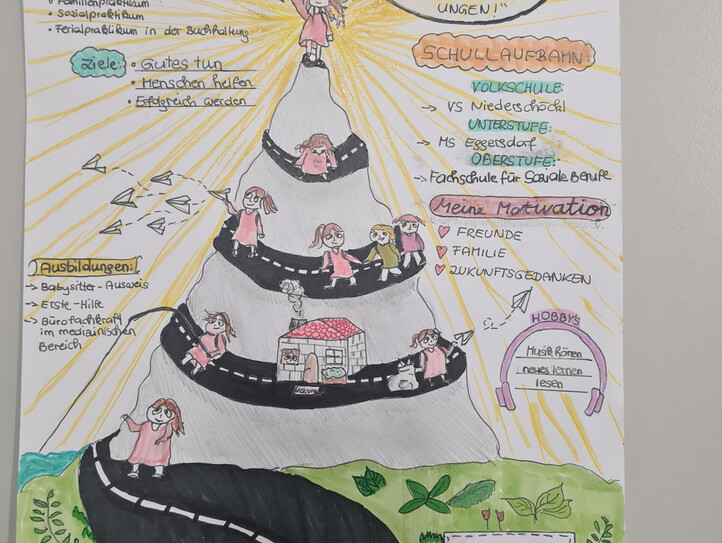 Familienpraktikum
• Sozialpraktikum
• Ferialpraktikum in der Buchhaltung
UNGEN!"
Ziele:
• Gutes tun
• Menschen helfen
• Erfolgreich werden
SCHULLAUFBAHN:
VOLKSCHULE:
→ VS Niederschöckl
UNTERSTUFE:
→ MS Eggersdorf
OBERSTUFE:
→ Fachschule für Soziale Berufe
Meine Motivation
♥ FREUNDE
♥ FAMILIE
♥ ZUKUNFTSGEDANKEN
Ausbildungen:
→ Babysitter-Ausweis
→ Erste-Hilfe
→ Bürofachkraft
im medizinischen
Bereich
HOBBY'S
Musik hören
neues lernen
lesen